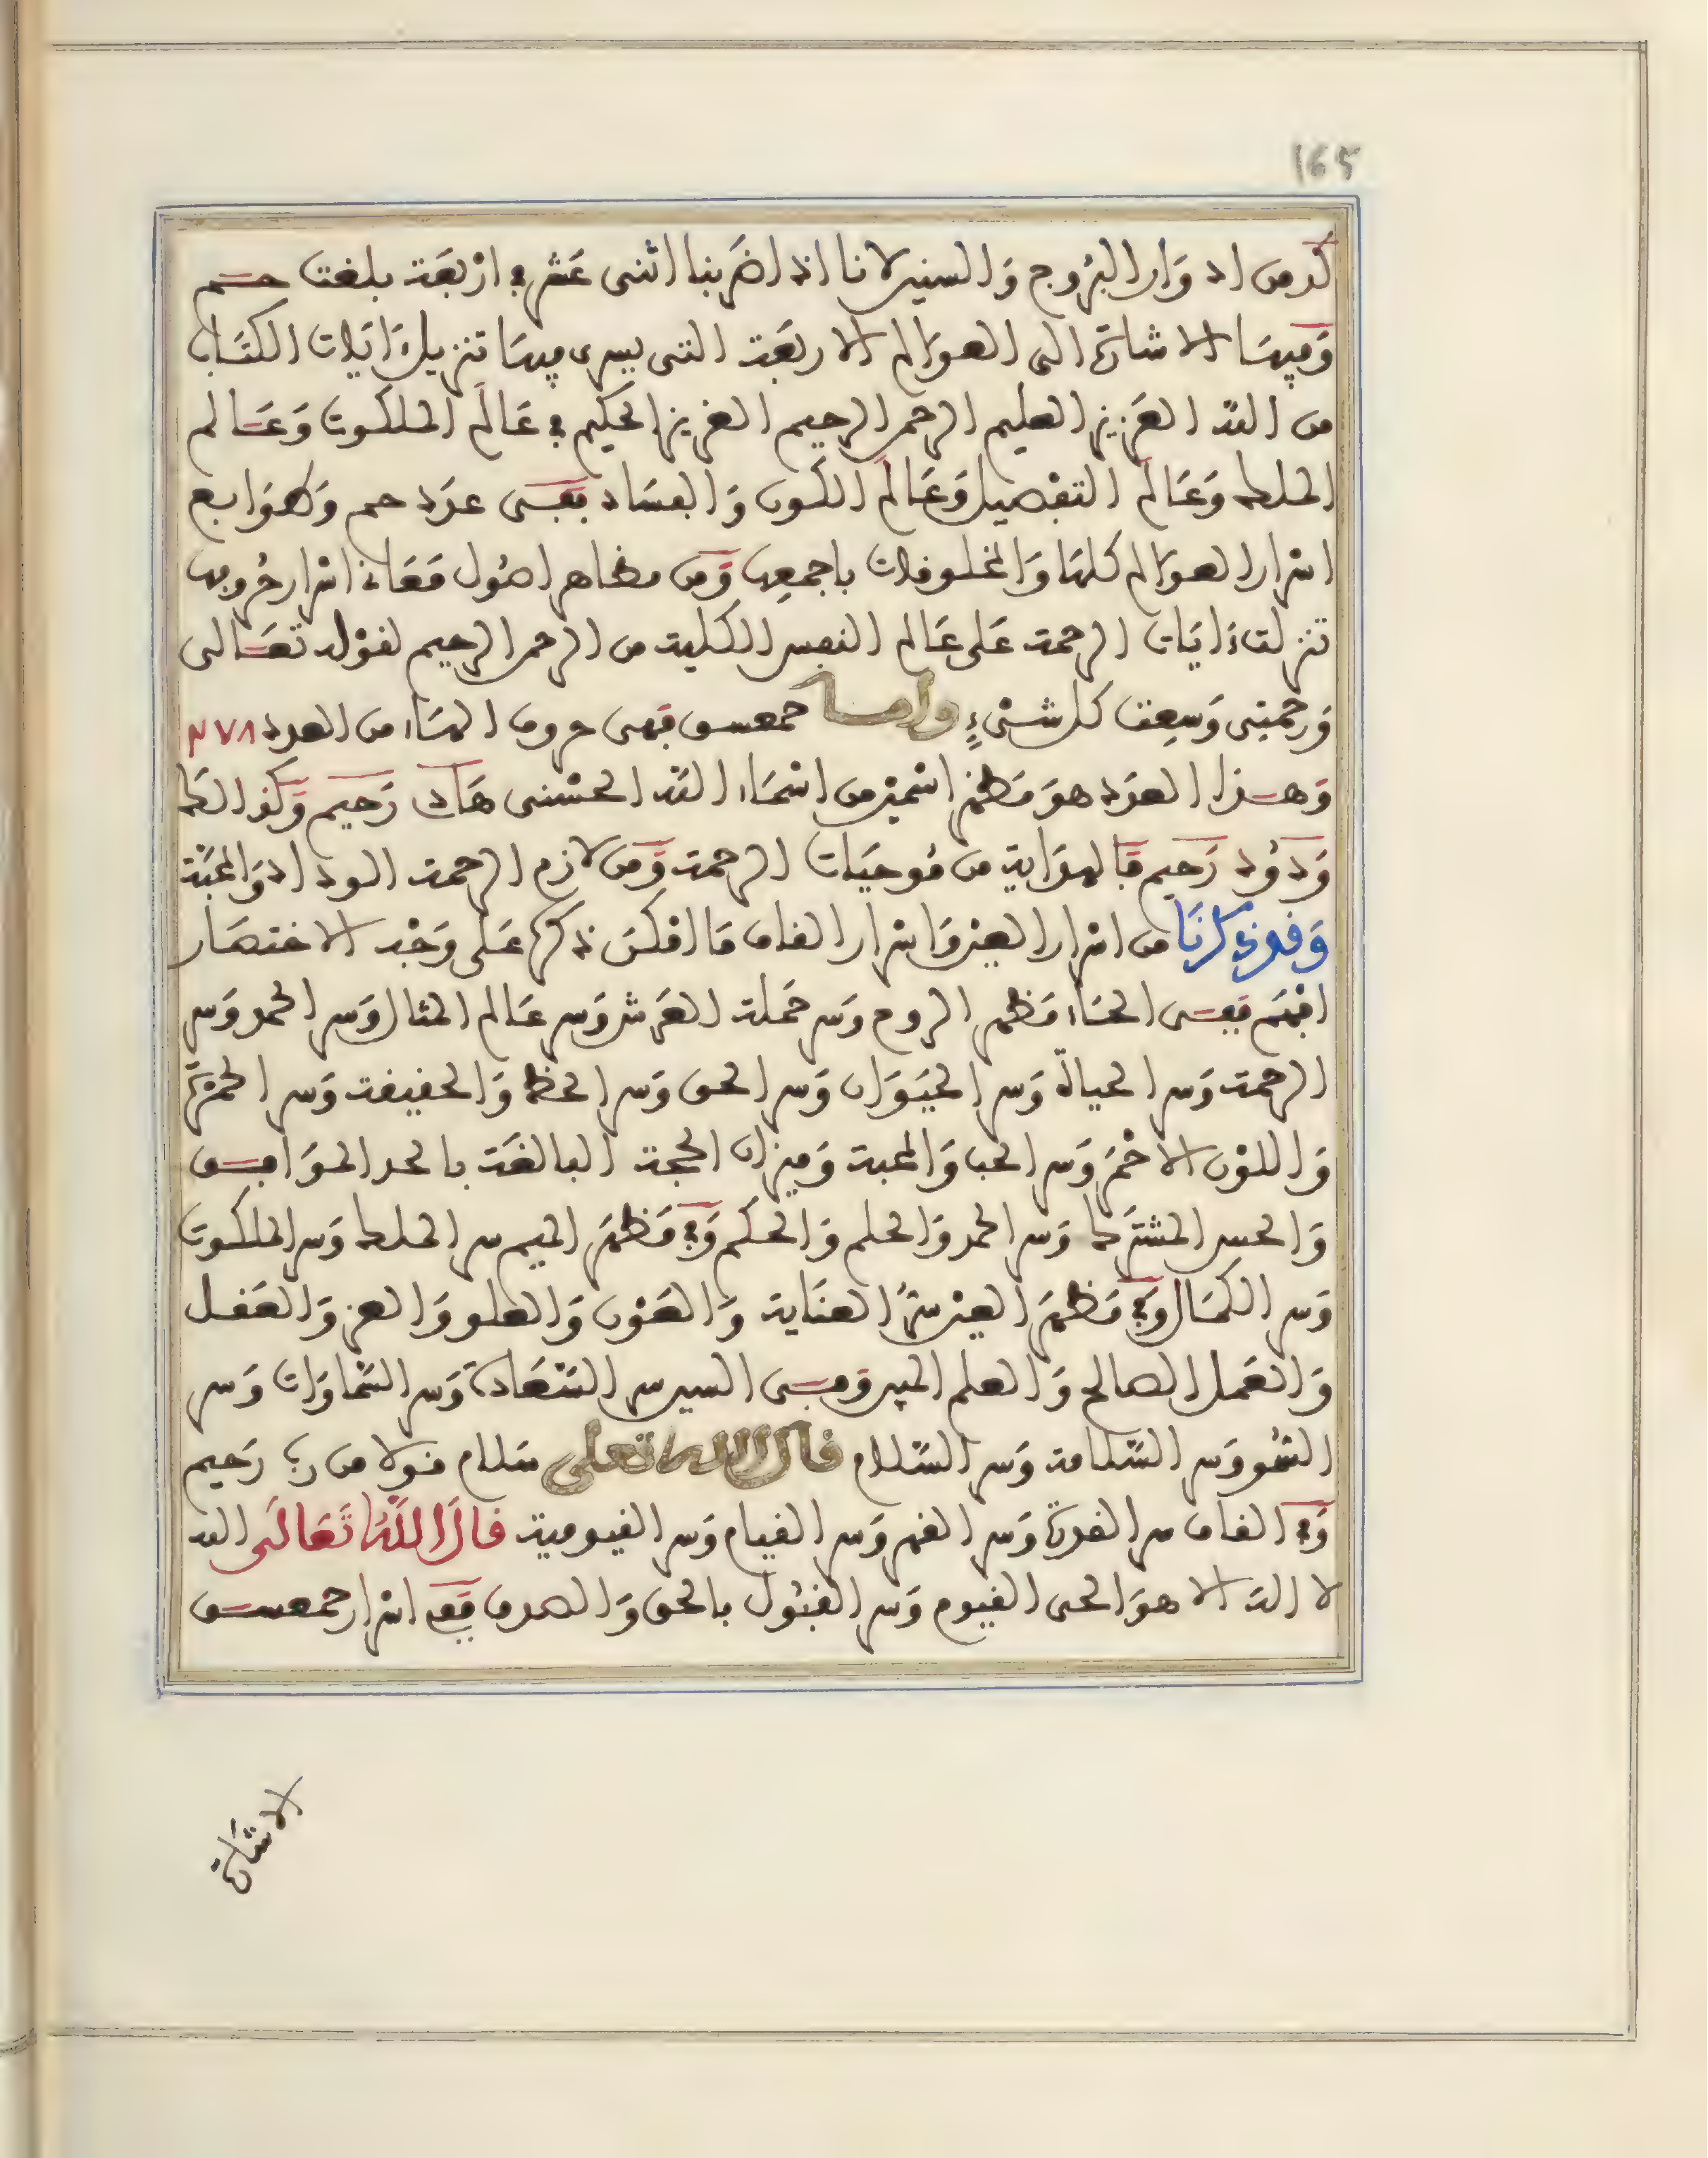 165
كد من ادوار البروج والسنين لانا اذا ضربنا اثنى عشر في اربعة بلغت حم
وفيها الاشارة الى العوالم الاربعة التى يسرى فيها تنزيل ءايات الكتاب
من الله العزيز العليم الرحمن الرحيم العزيز الحكيم في عالم الملكوت وعالم
الملك وعالم التفصيل وعالم الكون والفساد ففى عدد حم وطوابع
اسرار العوالم كلها والمخلوقات باجمعها ومن مظاهر اصول معانى اسرار حروفها
تنزلت ءايات الرحمة على عالم النفس الكلية من الرحمن الرحيم لقوله تعالى
ورحمتى وسعت كل شىء واما حمعسق فهى حروف لها من العدد ٢٧٨
وهذا العدد هو مظهر اسمين من اسماء الله الحسنى هاد رحيم وكذالك
ودود رحيم فالهداية من موجبات الرحمة ومن لازم الرحمة الوداد والمحبة
وقد ذكرنا من اسرار العين واسرار القاف ما امكن ذكره على وجه الاختصار
افهم ففى الحاء مظهر الروح وسر حملة العرش وسر عالم المثال وسر الحمد وسر
الرحمة وسر الحياة وسر الحيوان وسر الحق وسر الحظ والحقيقة وسر الحمرة
واللون الاحمر وسر الحب والمحبة وميزان الحجة البالغة بالحد الموافق
والحس المشترك وسر الحمد والحلم والحكم وفي مظهر الميم سر الملك وسر الملكوت
وسر الكمال وفي مظهر العين سر العناية والعون والعلو والعز والعقل
والعمل الصالح والعلم المبين وفى السين سر السعادة وسر السماوات وسر
السمو وسر السلامة وسر السلام قال الله تعلى سلام قولا من رب رحيم
وفي القاف سر القدرة وسر القهر وسر القيام وسر القيومية قال الله تعالى الله
لا اله الا هو الحى القيوم وسر القبول بالحق والصدق ففى اسرار حمعسق
الاشارة